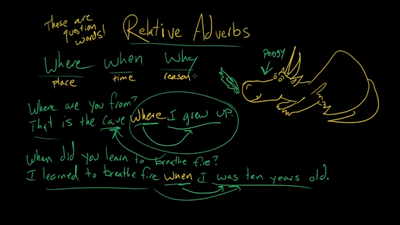 These are question words!
Relative Adverbs
Where When Why
place time reason
Peggy
Where are you from?
That is the cave where I grew up.
When did you learn to breathe fire?
I learned to breathe fire when I was ten years old.